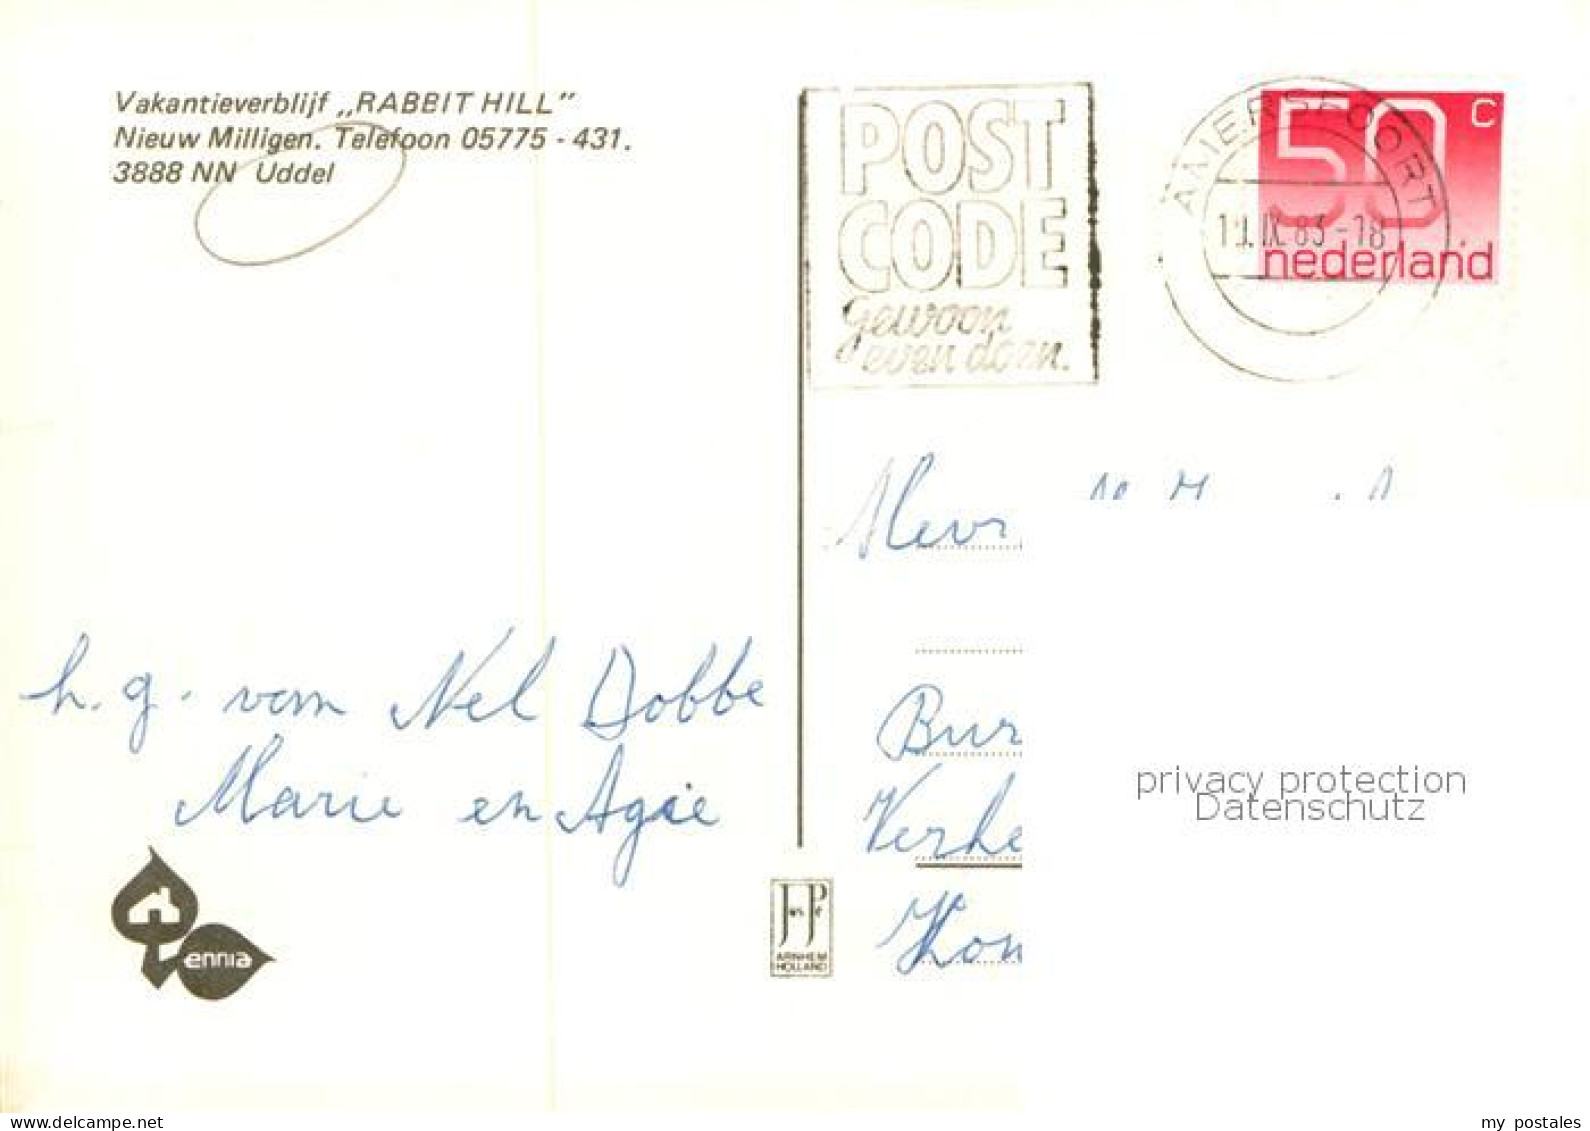 Vakantieverblijf „RABBIT HILL”
Nieuw Milligen. Telefoon 05775 - 431.
3888 NN Uddel
POST
CODE
gewoon
even doen.
AMERSFOORT
IX 83-18
50 C
nederland
Mevr.
h. g. van Nel Dobbe
Marie en Agie
Bur
Verhe
privacy protection
Datenschutz
ennia
Jos Pé
ARNHEM
HOLLAND
my postales